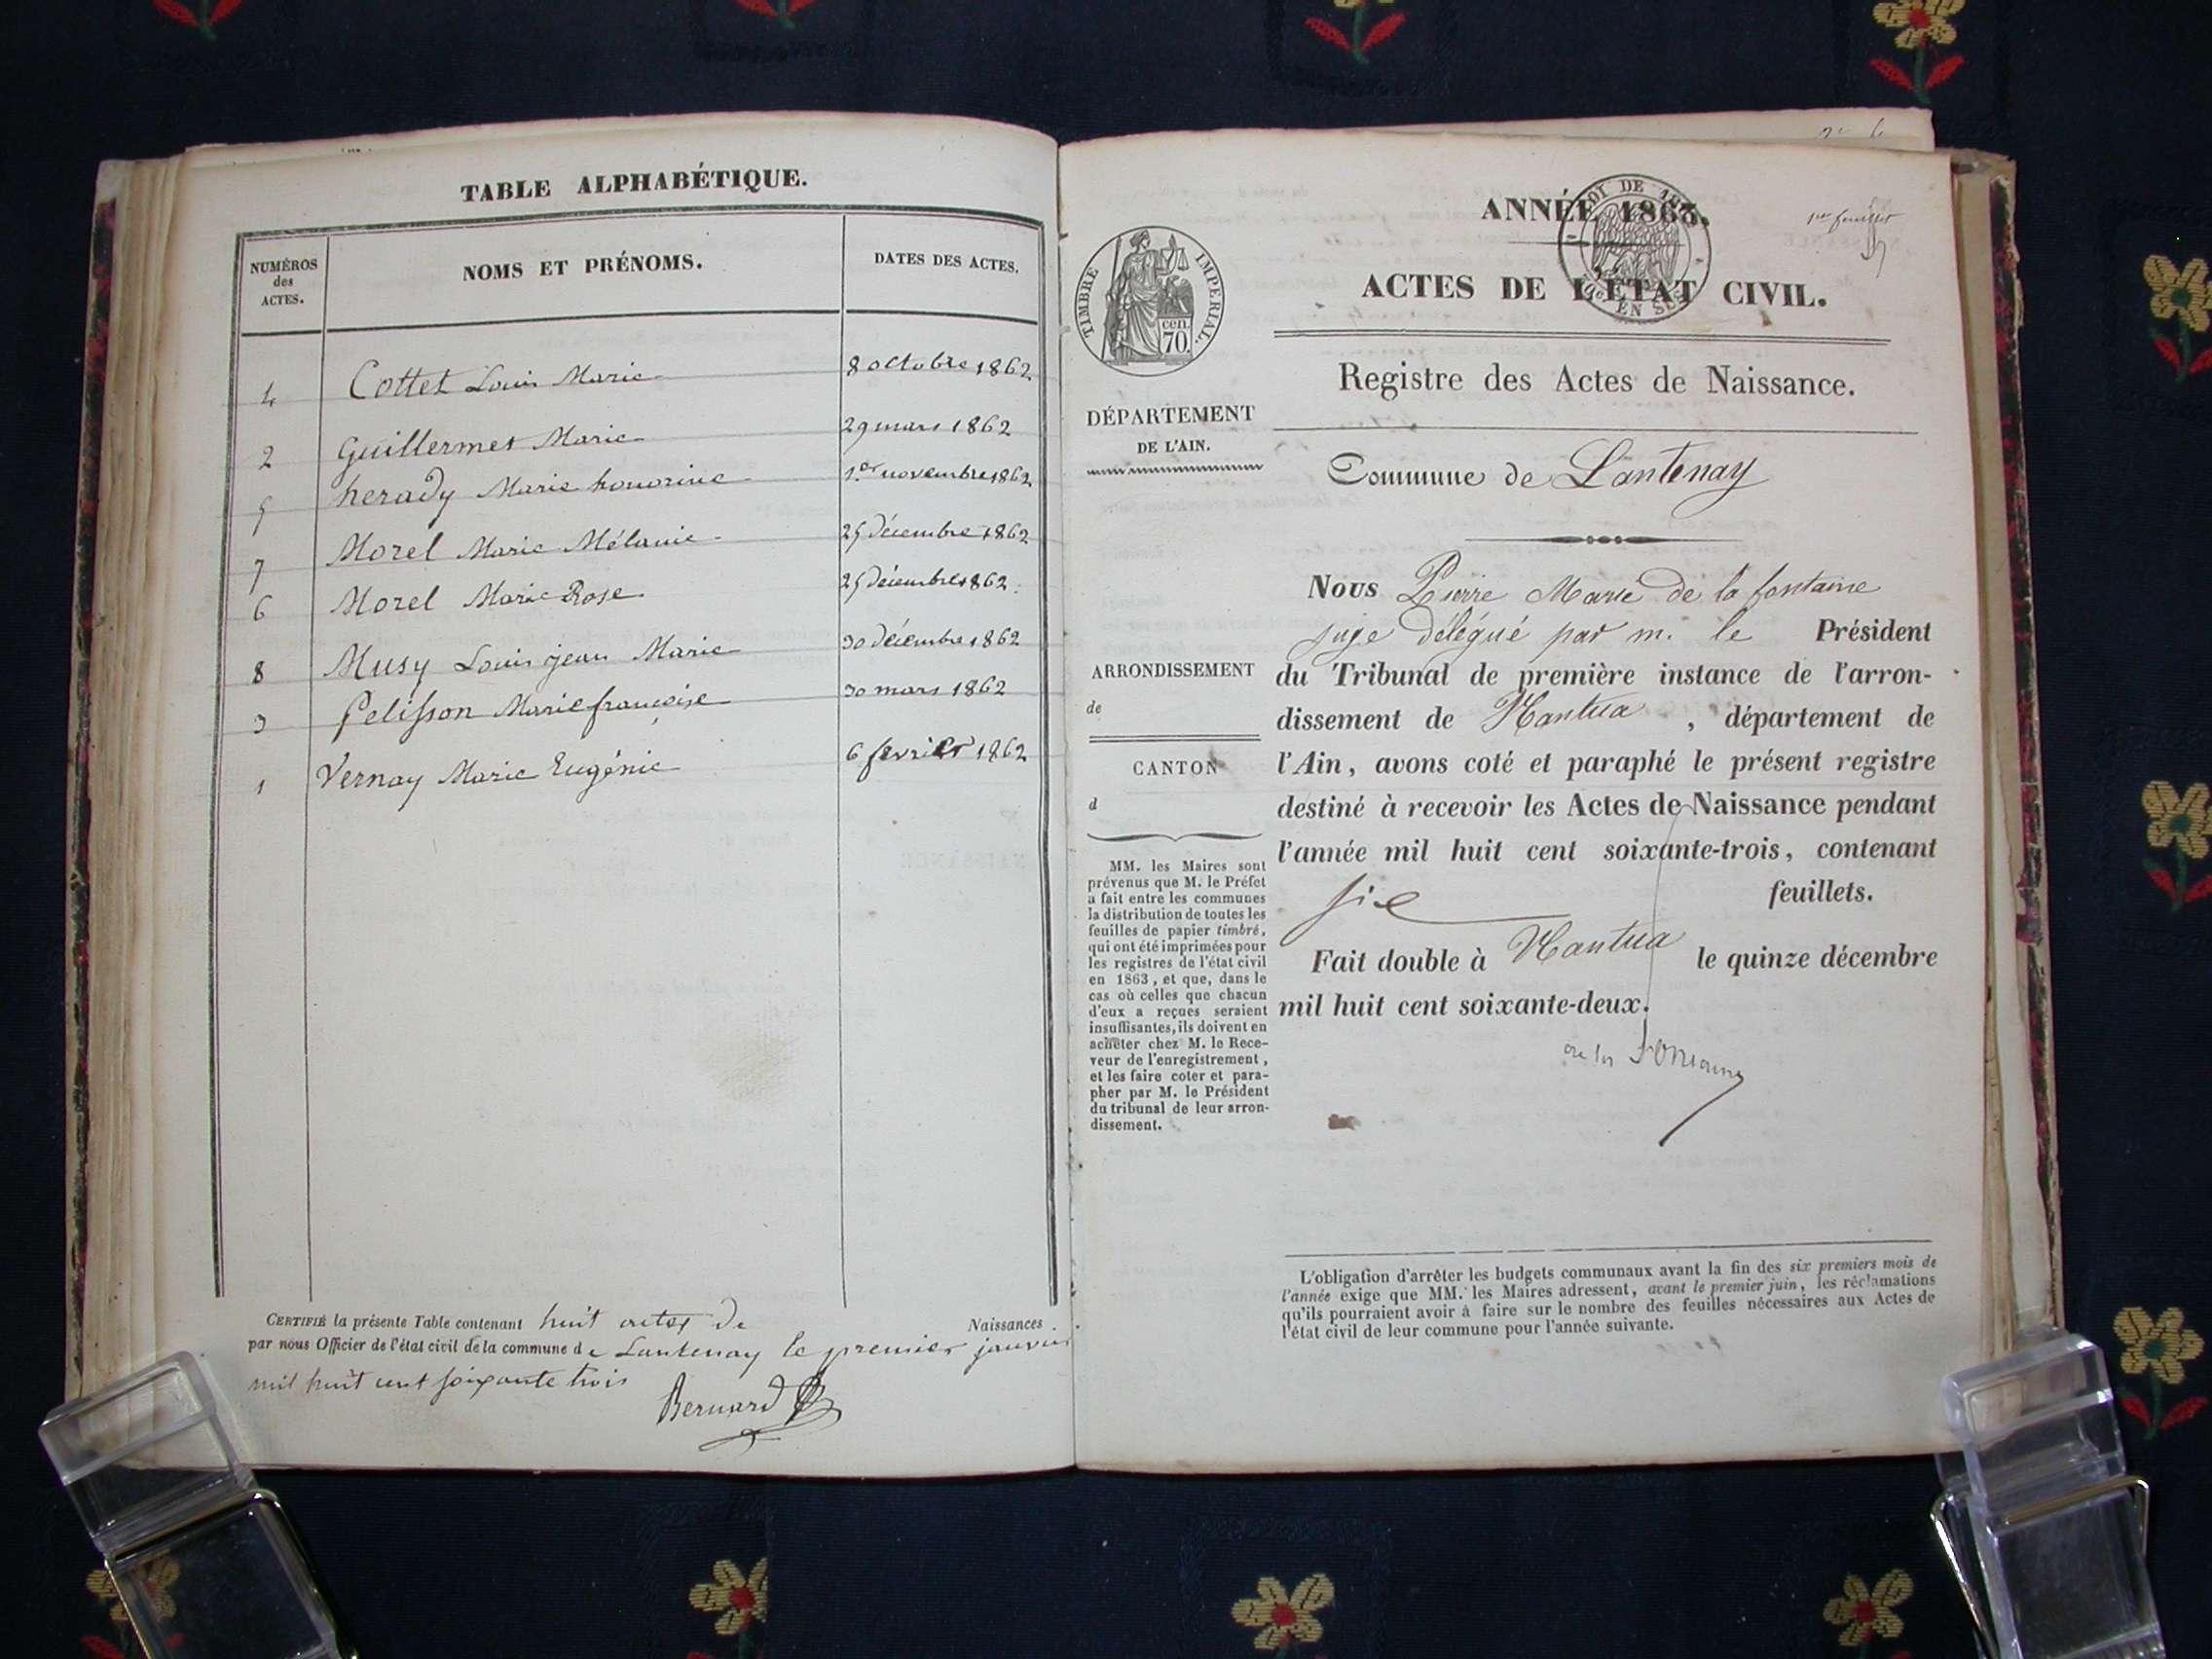 TABLE ALPHABÉTIQUE.
NUMÉROS des ACTES.
NOMS ET PRÉNOMS.
DATES DES ACTES.
4 Cottet Louis Marie 8 octobre 1862
2 Guillermet Marie 29 mars 1862
5 herady Marie honorine 1er novembre 1862
7 Morel Marie Mélanie 25 décembre 1862
6 Morel Marie Rose 25 décembre 1862
8 Musy Louis jean Marie 30 décembre 1862
3 Pelisson Marie françoise 30 mars 1862
1 Vernay Marie Eugénie 6 fevrier 1862
CERTIFIÉ la présente Table contenant huit actes de Naissances
par nous Officier de l'état civil de la commune de Lantenay le premier janvier
mil huit cent soixante trois
Bernard
1er feuillet
ANNÉE 1863.
ACTES DE L'ÉTAT CIVIL.
TIMBRE IMPERIAL.
cen. 70.
Registre des Actes de Naissance.
DÉPARTEMENT
DE L'AIN.
Commune de Lantenay
Nous Pierre Marie de la fontaine
juge délégué par m. le Président
du Tribunal de première instance de l'arron-
dissement de Nantua, département de
l'Ain, avons coté et paraphé le présent registre
destiné à recevoir les Actes de Naissance pendant
l'année mil huit cent soixante-trois, contenant
six feuillets.
Fait double à Nantua le quinze décembre
mil huit cent soixante-deux.
ARRONDISSEMENT
de
CANTON
d
MM. les Maires sont
prévenus que M. le Préfet
a fait entre les communes
la distribution de toutes les
feuilles de papier timbré,
qui ont été imprimées pour
les registres de l'état civil
en 1863, et que, dans le
cas où celles que chacun
d'eux a reçues seraient
insuffisantes, ils doivent en
acheter chez M. le Rece-
veur de l'enregistrement,
et les faire coter et para-
pher par M. le Président
du tribunal de leur arron-
dissement.
L'obligation d'arrêter les budgets communaux avant la fin des six premiers mois de
l'année exige que MM. les Maires adressent, avant le premier juin, les réclamations
qu'ils pourraient avoir à faire sur le nombre des feuilles nécessaires aux Actes de
l'état civil de leur commune pour l'année suivante.